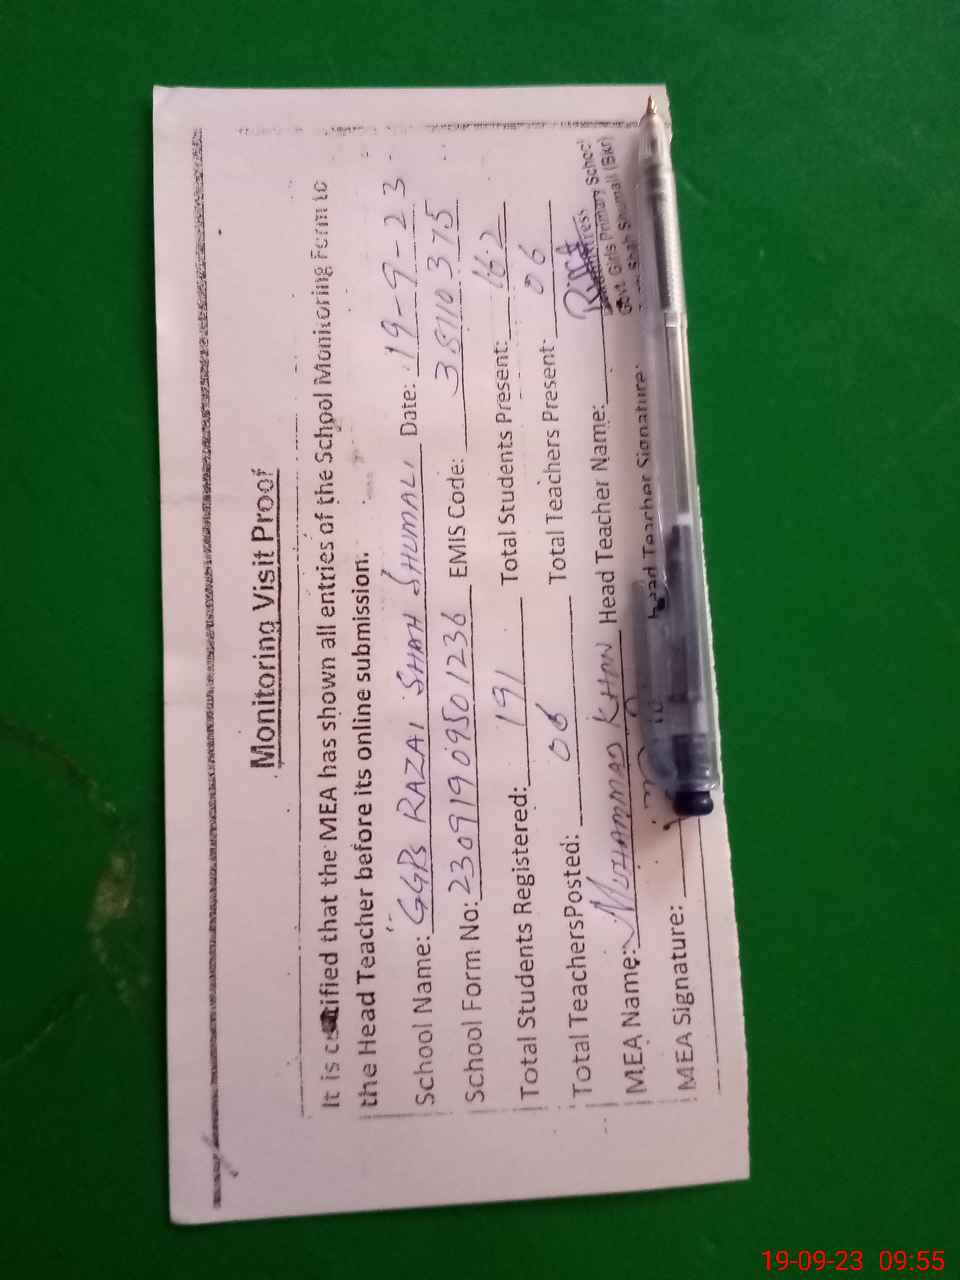 Monitoring Visit Proof
It is certified that the MEA has shown all entries of the School Monitoring Form to
the Head Teacher before its online submission.
School Name: GGPS RAZAI SHAH SHUMALI Date: 19-9-23
School Form No: 23091909501236 EMIS Code: 38110375
Total Students Registered: 191 Total Students Present: 162
Total TeachersPosted: 06 Total Teachers Present: 06
MEA Name: MUHAMMAD KHAN Head Teacher Name:
Govt. Girls Primary School
Shah Shumali (Bkr)
MEA Signature: Head Teacher Signature:
19-09-23 09:55